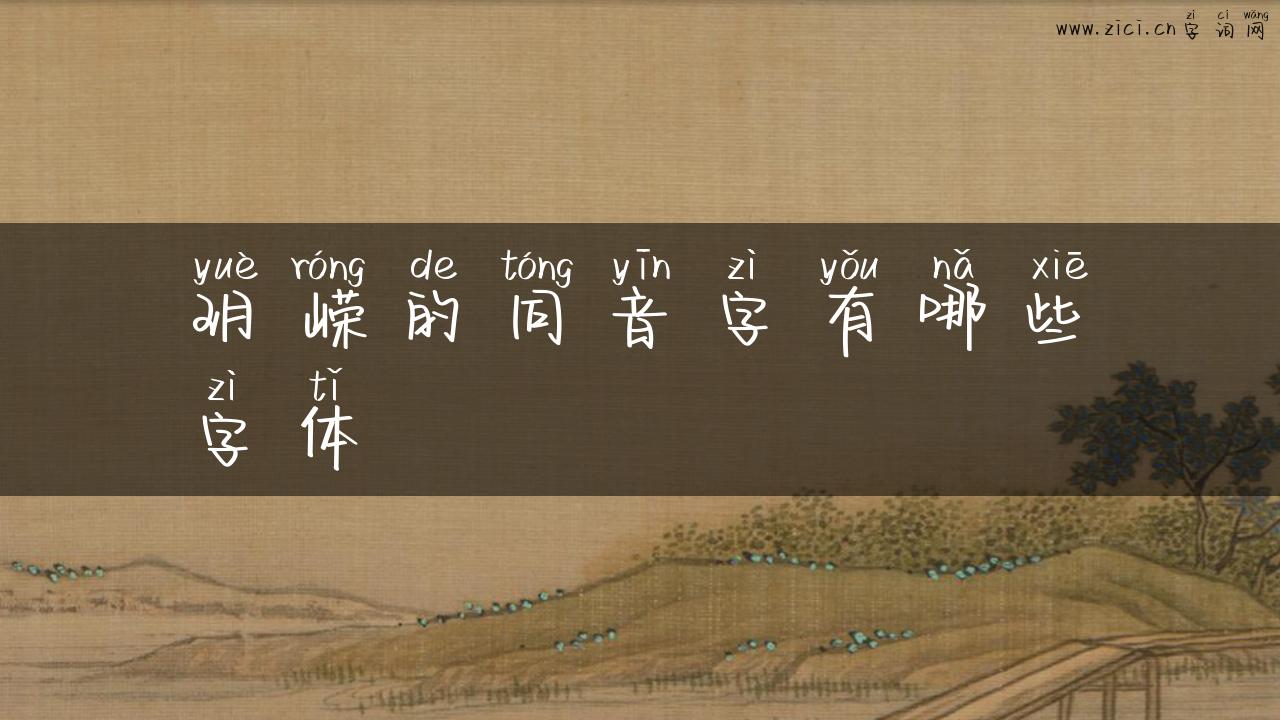 zì cí wǎng
www.zici.cn字词网
yuè róng de tóng yīn zì yǒu nǎ xiē
玥嵘的同音字有哪些
zì tǐ
字体